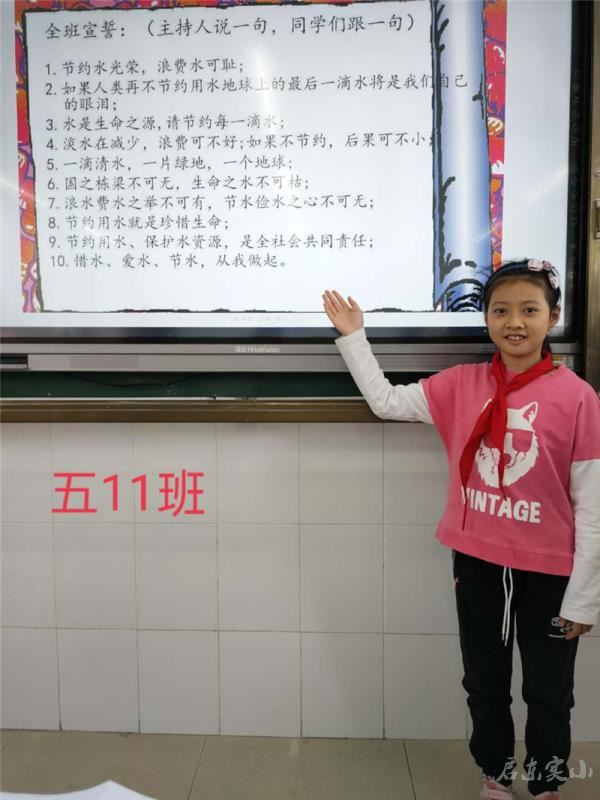 全班宣誓：（主持人说一句，同学们跟一句）
1. 节约水光荣，浪费水可耻；
2. 如果人类再不节约用水地球上的最后一滴水将是我们自己
的眼泪；
3. 水是生命之源,请节约每一滴水；
4. 淡水在减少，浪费可不好;如果不节约，后果可不小;
5. 一滴清水，一片绿地，一个地球；
6. 国之栋梁不可无，生命之水不可枯；
7. 浪水费水之举不可有，节水俭水之心不可无；
8. 节约用水就是珍惜生命；
9. 节约用水、保护水资源，是全社会共同责任；
10. 惜水、爱水、节水，从我做起。
HiteVision
五11班
VINTAGE
启东实小